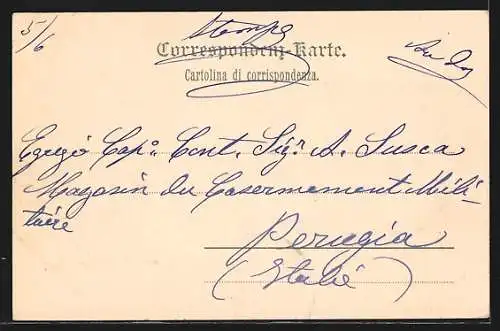 5/6
Stampe
Correspondenz-Karte.
Cartolina di corrispondenza.
Egregio Capº Cont. Sigr. A. Susca
Magasin du Casermement Mili-
taire
Perugia
(Italie)